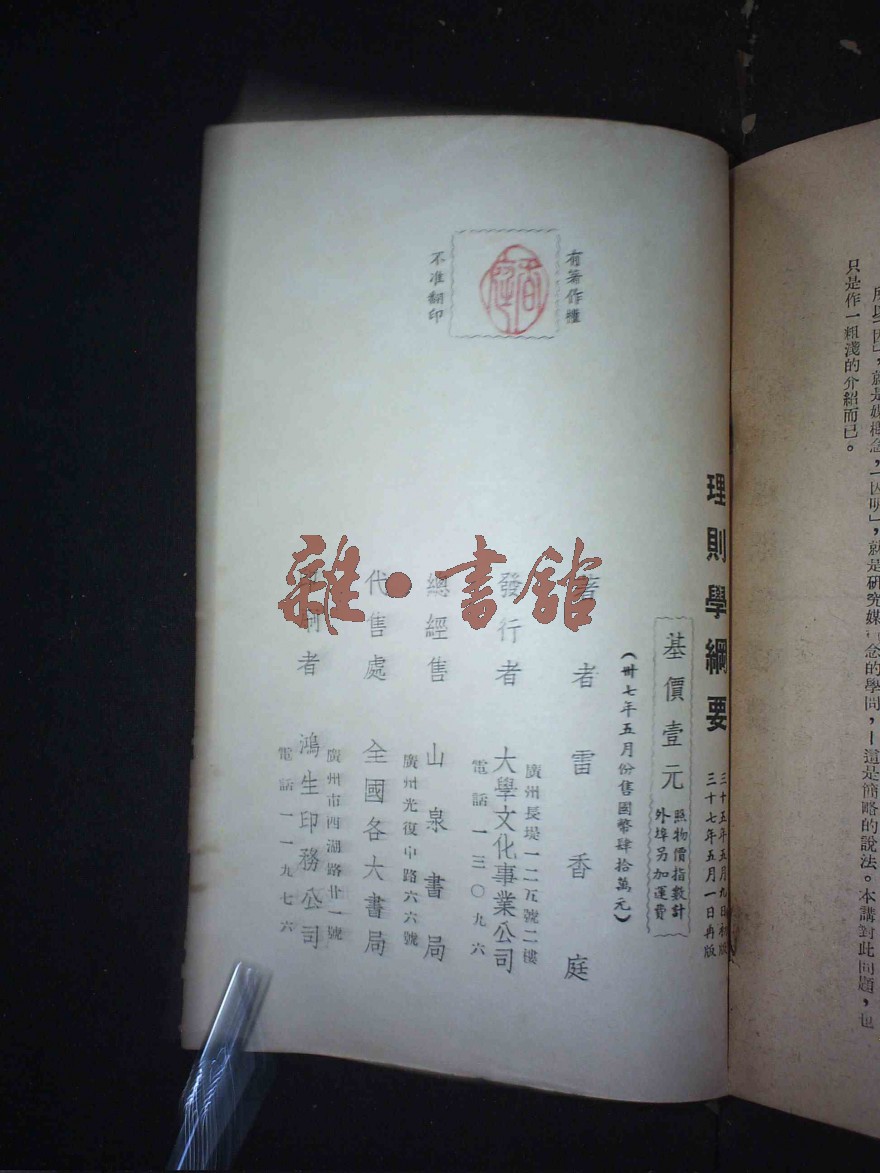 所以「因」，就是媒概念，「因明」，就是研究媒 念的學問，－這是簡略的說法。本講對此問題，也
只是作一粗淺的介紹而已。
理則學綱要
三十五年五月九日初版
三十七年五月一日再版
基價壹元
照物價指數計
外埠另加運費
（卅七年五月份售國幣肆拾萬元）
有著作權
不准翻印
著者 雷香庭
發行者 大學文化事業公司
廣州長堤一二五號二樓
電話一三〇九六
總經售 山泉書局
廣州光復中路六六號
代售處 全國各大書局
印刷者 鴻生印務公司
廣州市西湖路廿一號
電話一一九七六
雜·書館
香庭